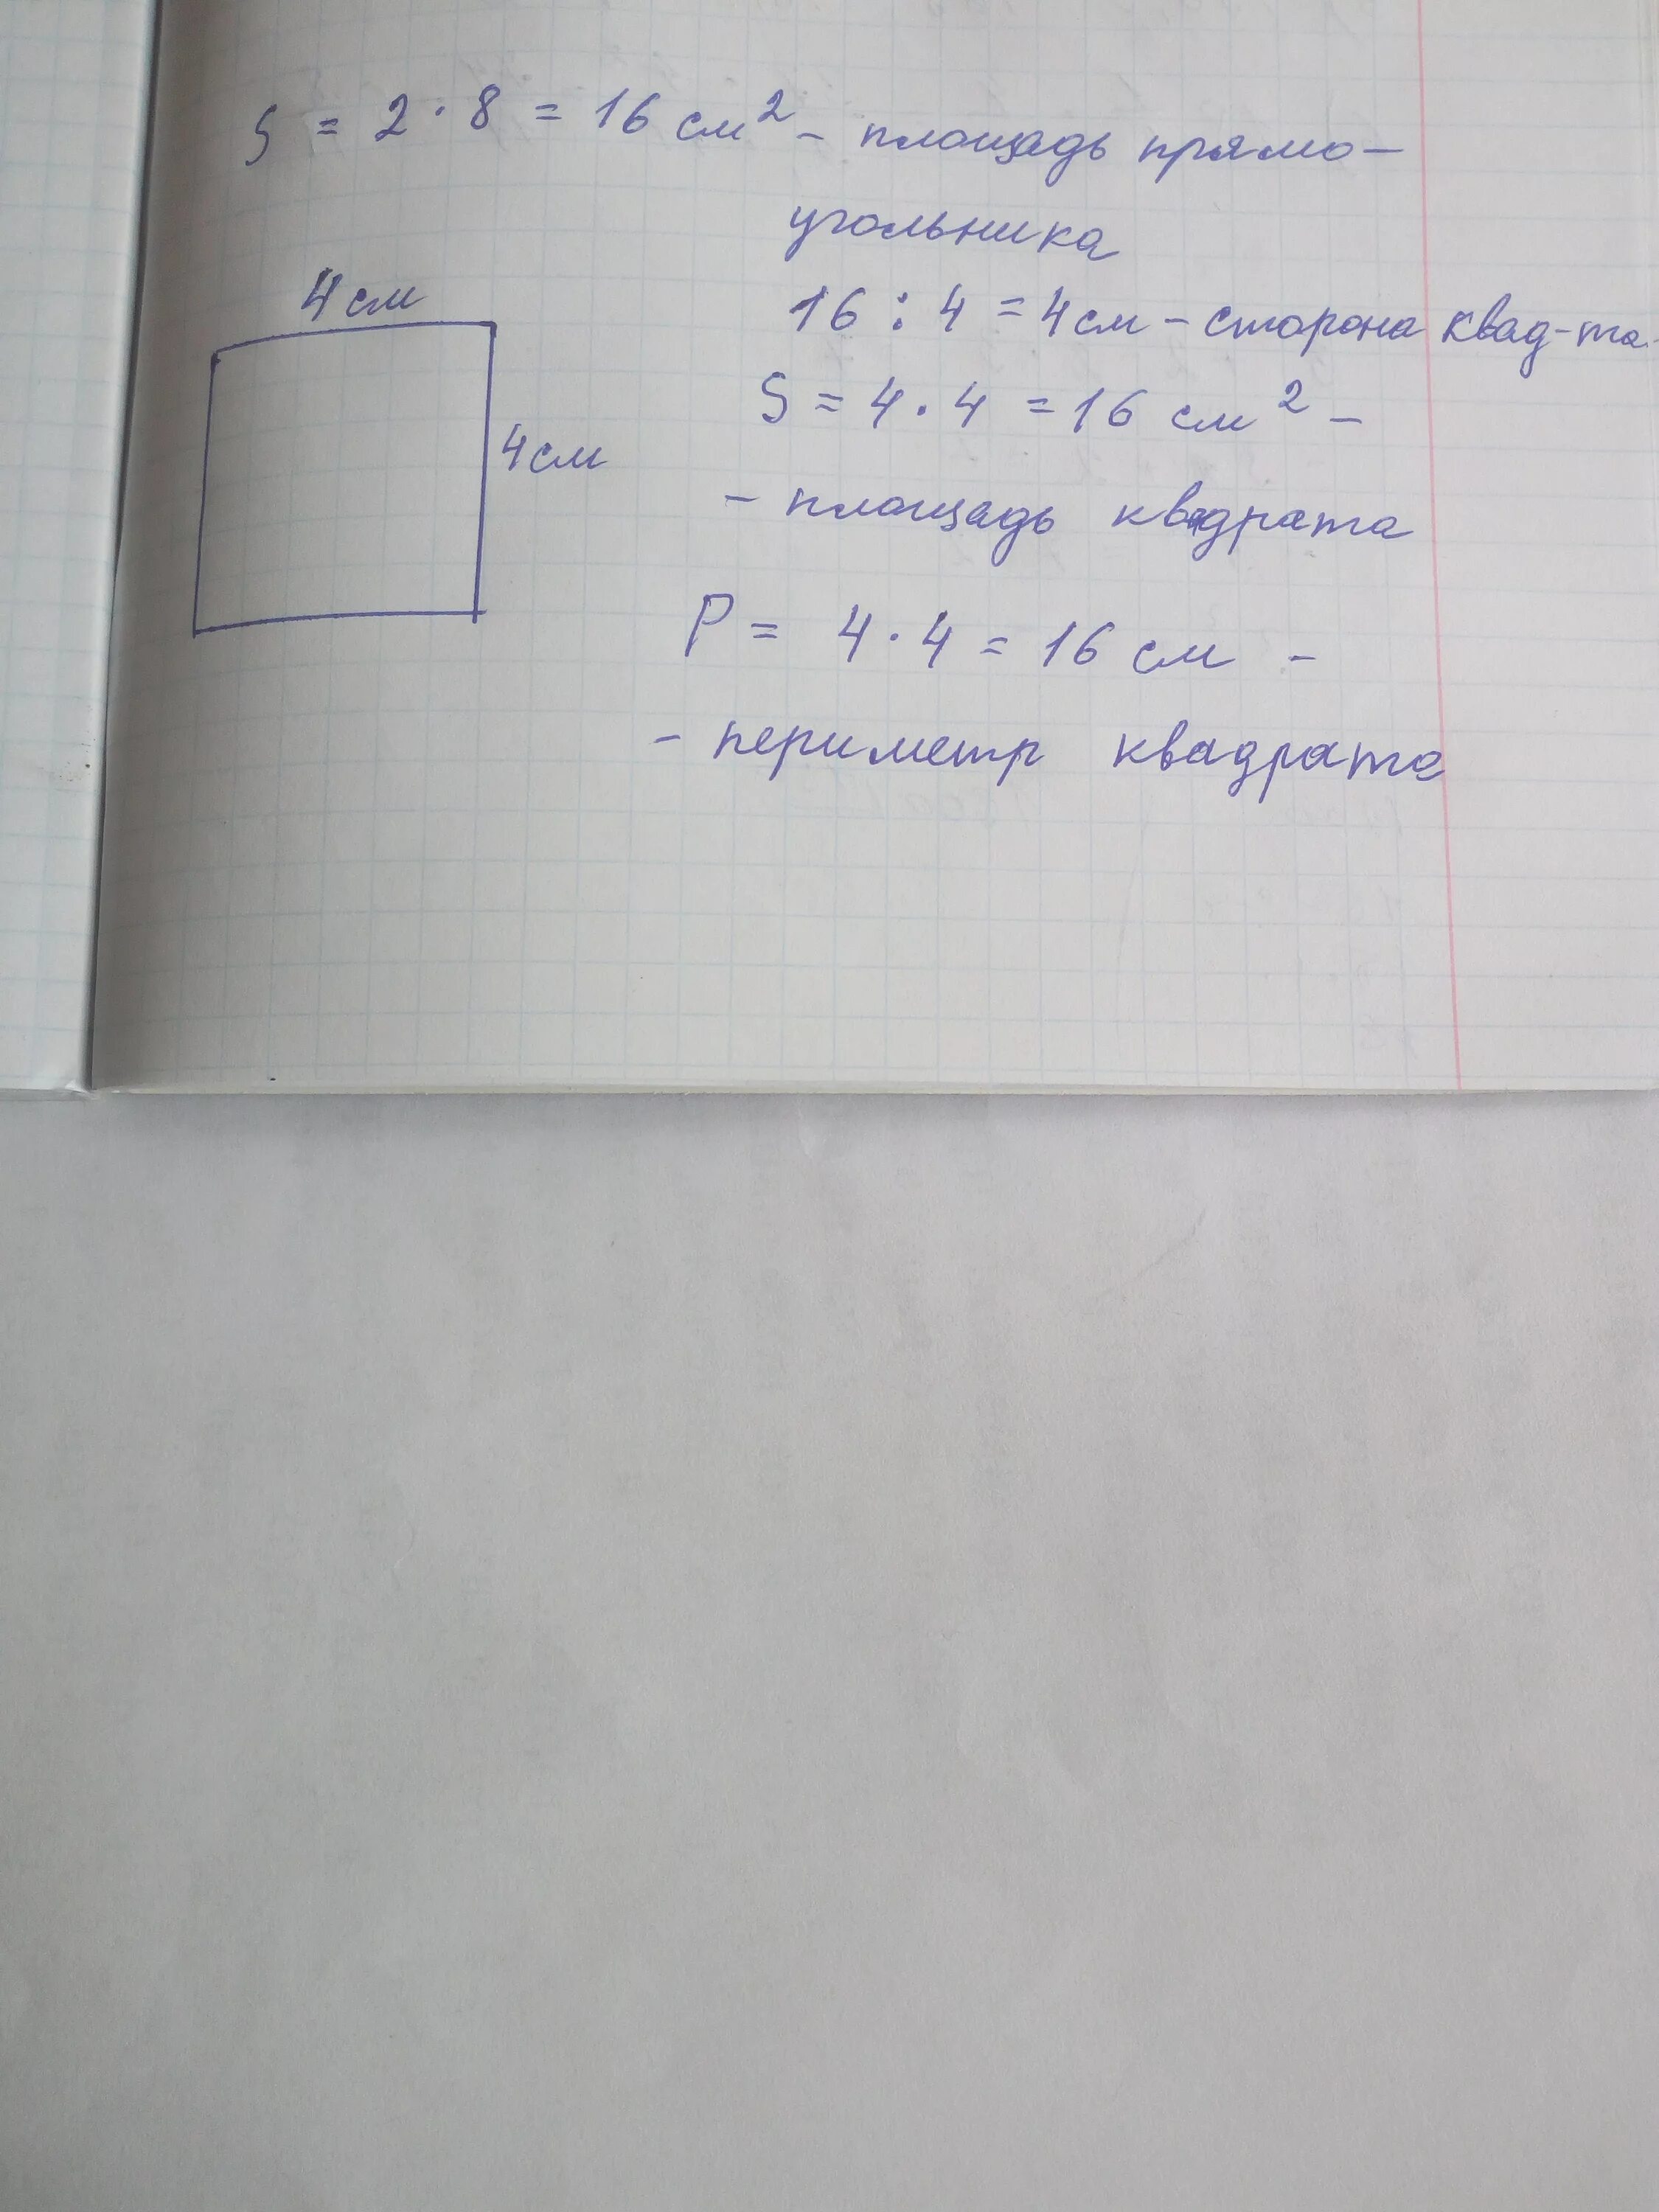 S = 2 · 8 = 16 см² - площадь прямо-
угольника
4 см
16 : 4 = 4 см - сторона квад-та.
S = 4 · 4 = 16 см² -
4 см
- площадь квадрата
P = 4 · 4 = 16 см -
- периметр квадрата